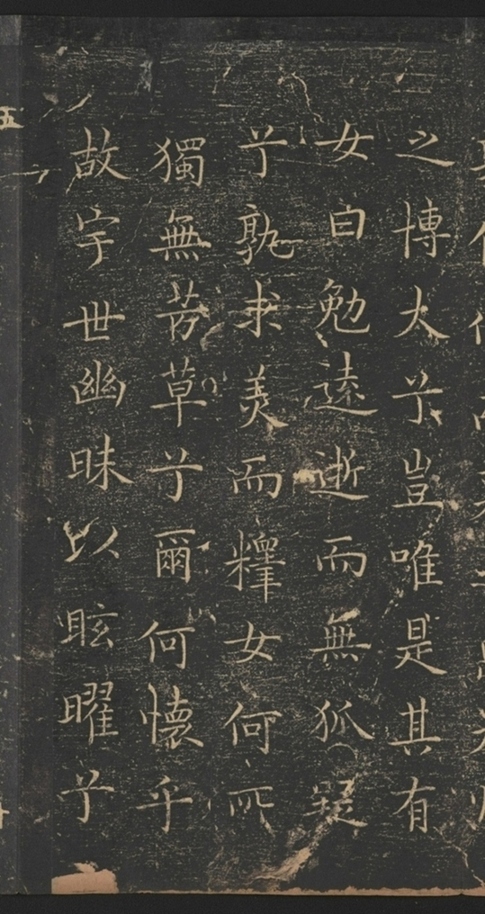 之博大兮豈唯是其有
女曰勉遠逝而無狐疑
兮孰求美而釋女何所
獨無芳草兮爾何懷乎
故宇世幽昧以眩曜兮